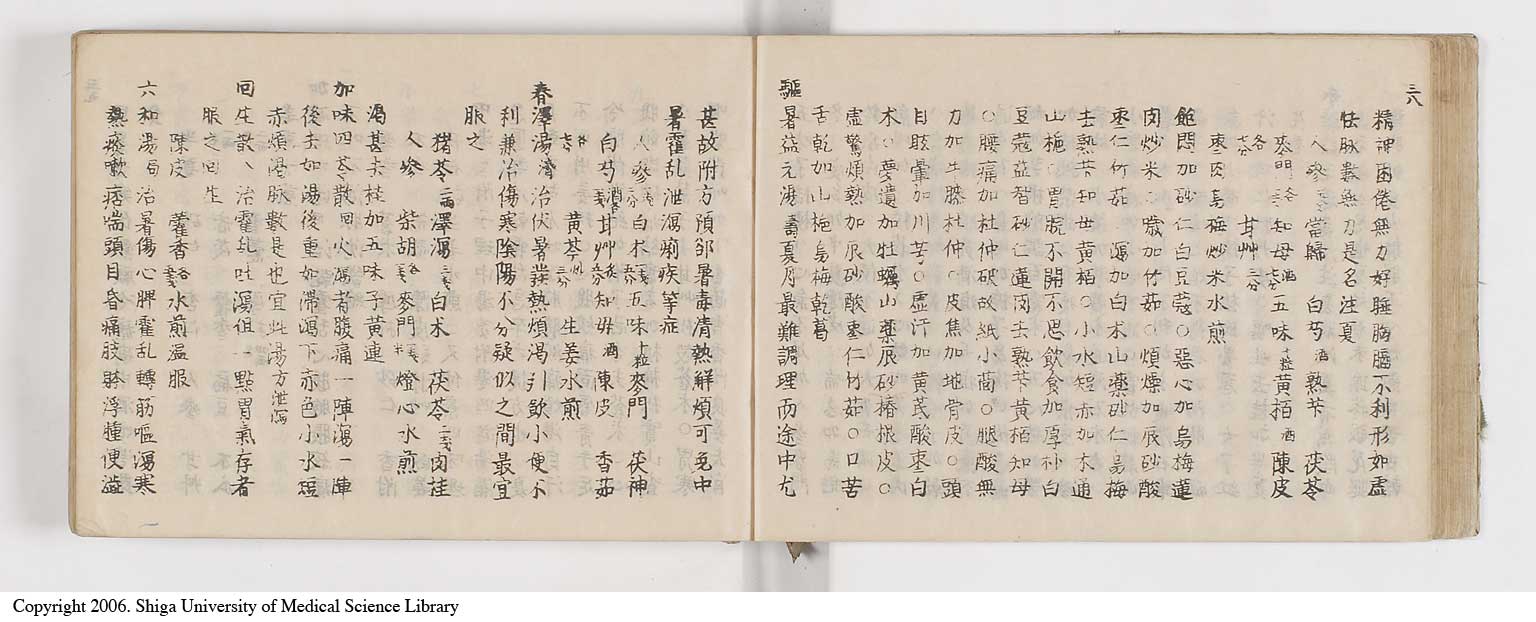 三八
精神困倦無力好睡胸膈不利形如虛
怯脉數無力是名注夏
人參 當歸 白芍酒 熟苄 茯苓
麥門 知母酒 五味十粒 黃栢酒 陳皮
各 甘艸二分
棗肉烏梅炒米水煎
飽悶加砂仁白豆蔻○惡心加烏梅蓮
肉炒米○噦加竹茹○煩燥加辰砂酸
棗仁竹茹○瀉加白朮山藥砂仁烏梅
去熟苄知母黃栢○小水短赤加木通
山梔○胃脘不開不思飲食加厚朴白
豆蔻益智砂仁蓮肉去熟苄黃栢知母
○腰痛加杜仲破故紙小茴○腿酸無
力加牛膝杜仲○皮焦加地骨皮○頭
目眩暈加川芎○虛汗加黃芪酸棗白
朮○夢遺加牡蠣山藥辰砂椿根皮○
虛驚煩熱加辰砂酸棗仁竹茹○口苦
舌乾加山梔烏梅乾葛
驅暑益元湯 壽 夏月最難調理而途中尤
甚故附方預邵暑毒清熱解煩可免中
暑霍乱泄瀉痢疾等症
人參 白朮 五味十粒 麥門 茯神
白芍酒 甘艸 知母酒 陳皮 香茹
黃芩 生姜水煎
春澤湯 濟 治伏暑發熱煩渴引飲小便不
利兼治傷寒陰陽不分疑似之間最宜
服之
猪苓二兩 澤瀉 白朮 茯苓 肉桂
人參 柴胡 麥門 燈心水煎
渴甚去桂加五味子黃連
加味四苓散 回 火瀉者腹痛一陣瀉一陣
後去如湯後重如滯瀉下赤色小水短
赤煩渴脉數是也宜此湯方泄瀉
回生散 治霍乱吐瀉但一點胃氣存者
服之回生
陳皮 藿香各 水煎溫服
六和湯 局 治暑傷心脾霍乱轉筋嘔瀉寒
熱痰嗽痞喘頭目昏痛肢躰浮腫便澁